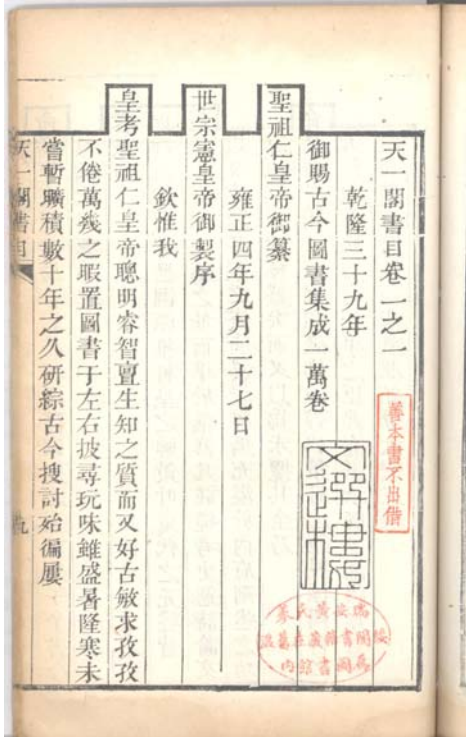 天一閣書目卷一之一
乾隆三十九年
御賜古今圖書集成一萬卷
文選樓
善本書不出借
聖祖仁皇帝御纂
雍正四年九月二十七日
世宗憲皇帝御製序
欽惟我
皇考聖祖仁皇帝聰明睿智亶生知之質而又好古敏求孜孜
不倦萬幾之暇置圖書于左右披尋玩味雖盛暑隆寒未
嘗暫曠積數十年之久研綜古今搜討殆徧屢
天一閣書目